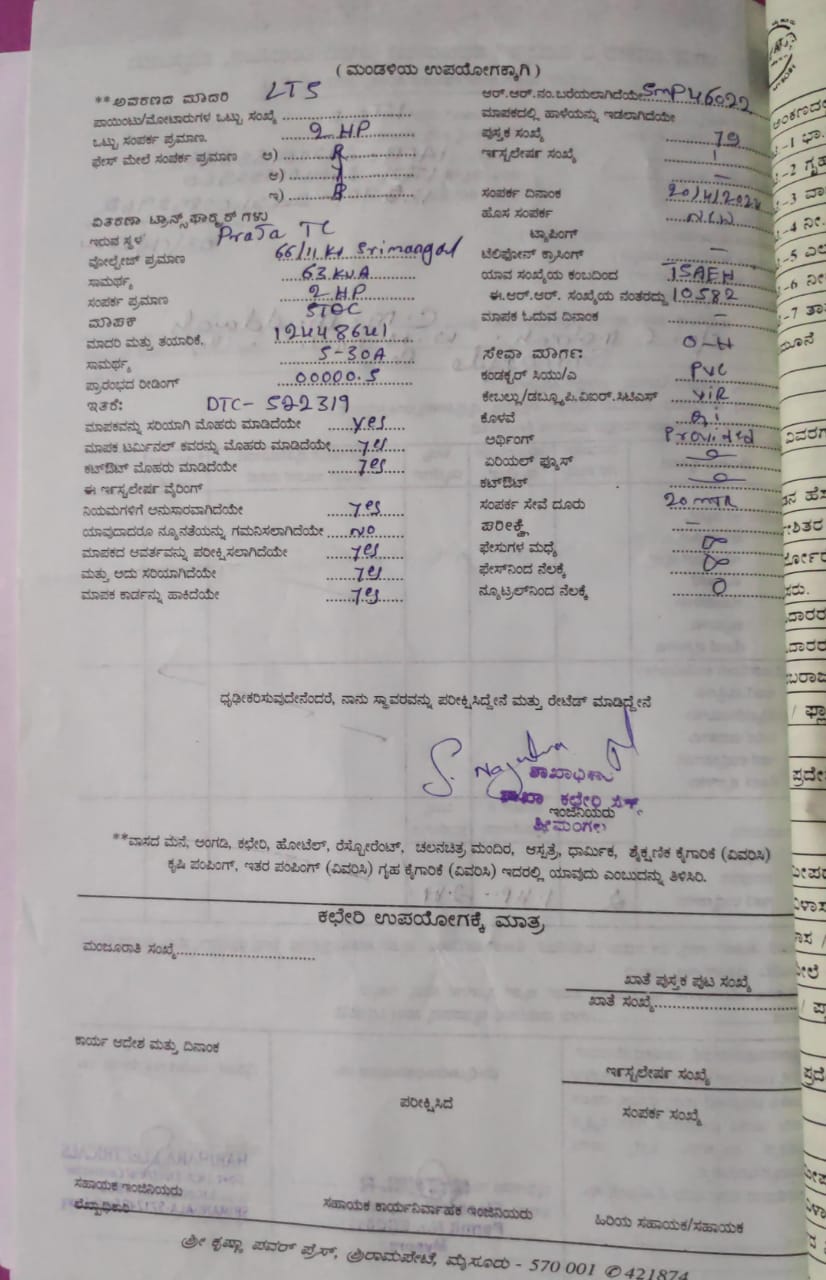 ( ಮಂಡಳಿಯ ಉಪಯೋಗಕ್ಕಾಗಿ )
**ಅವಕಣದ ಮಾದರಿ LT5
ಪಾಯಿಂಟು/ಮೋಟಾರುಗಳ ಒಟ್ಟು ಸಂಖ್ಯೆ
ಒಟ್ಟು ಸಂಪರ್ಕ ಪ್ರಮಾಣ. 2 HP
ಫೇಸ್ ಮೇಲೆ ಸಂಪರ್ಕ ಪ್ರಮಾಣ ಅ) R
ಆ) Y
ಇ) B
ವಿತರಣಾ ಟ್ರಾನ್ಸ್‌ಫಾರ್ಮರ್ ಗಳು
ಇರುವ ಸ್ಥಳ PraJa TC
ವೋಲ್ಟೇಜ್ ಪ್ರಮಾಣ 66/11 KV Srimangal
ಸಾಮರ್ಥ್ಯ 63 KVA
ಸಂಪರ್ಕ ಪ್ರಮಾಣ 2 HP
ಮಾಪಕ
ಮಾದರಿ ಮತ್ತು ತಯಾರಿಕೆ. 12448641
ಸಾಮರ್ಥ್ಯ 5-30A
ಪ್ರಾರಂಭದ ರೀಡಿಂಗ್ 00000.5
ಇತರೆ: DTC- 522319
ಮಾಪಕವನ್ನು ಸರಿಯಾಗಿ ಮೊಹರು ಮಾಡಿದೆಯೇ yes
ಮಾಪಕ ಟರ್ಮಿನಲ್ ಕವರನ್ನು ಮೊಹರು ಮಾಡಿದೆಯೇ yes
ಕಟ್‌ಔಟ್ ಮೊಹರು ಮಾಡಿದೆಯೇ yes
ಈ ಇನ್ಸ್ಟಲೇಷನ್ ವೈರಿಂಗ್
ನಿಯಮಗಳಿಗೆ ಅನುಸಾರವಾಗಿದೆಯೇ yes
ಯಾವುದಾದರೂ ನ್ಯೂನತೆಯನ್ನು ಗಮನಿಸಲಾಗಿದೆಯೇ no
ಮಾಪಕದ ಆವರ್ತವನ್ನು ಪರೀಕ್ಷಿಸಲಾಗಿದೆಯೇ yes
ಮತ್ತು ಅದು ಸರಿಯಾಗಿದೆಯೇ yes
ಮಾಪಕ ಕಾರ್ಡನ್ನು ಹಾಕಿದೆಯೇ yes
ಆರ್.ಆರ್.ನಂ.ಬರೆಯಲಾಗಿದೆಯೇ SMP46022
ಮಾಪಕದಲ್ಲಿ ಹಾಳೆಯನ್ನು ಇಡಲಾಗಿದೆಯೇ
ಪುಸ್ತಕ ಸಂಖ್ಯೆ 79
ಇನ್ಸ್ಟಲೇಷನ್ ಸಂಖ್ಯೆ 1
—
ಸಂಪರ್ಕ ದಿನಾಂಕ
ಹೊಸ ಸಂಪರ್ಕ
ಟ್ಯಾಪಿಂಗ್
ಟೆಲಿಫೋನ್ ಕ್ರಾಸಿಂಗ್ —
ಯಾವ ಸಂಖ್ಯೆಯ ಕಂಬದಿಂದ
ಈ.ಆರ್.ಆರ್. ಸಂಖ್ಯೆಯ ನಂತರದ್ದು 10582
ಮಾಪಕ ಓದುವ ದಿನಾಂಕ —
ಸೇವಾ ಮಾರ್ಗ: O-H
ಕಂಡಕ್ಟರ್ ಸಿಯು/ಎ PVC
ಕೇಬಲ್ಲು/ಡಬ್ಲ್ಯೂ.ಪಿ.ವಿಐಆರ್.ಸಿಟಿಎಸ್ VIR
ಕೊಳವೆ Gi
ಅರ್ಥಿಂಗ್ Provided
ಏರಿಯಲ್ ಫ್ಯೂಸ್
ಕಟ್‌ಔಟ್
ಸಂಪರ್ಕ ಸೇವೆ ದೂರು 20 MTR
ಪರೀಕ್ಷೆ —
ಫೇಸುಗಳ ಮಧ್ಯೆ ∞
ಫೇಸ್‌ನಿಂದ ನೆಲಕ್ಕೆ ∞
ನ್ಯೂಟ್ರಲ್‌ನಿಂದ ನೆಲಕ್ಕೆ 0
ಧೃಢೀಕರಿಸುವುದೇನೆಂದರೆ, ನಾನು ಸ್ಥಾವರವನ್ನು ಪರೀಕ್ಷಿಸಿದ್ದೇನೆ ಮತ್ತು ರೇಟೆಡ್ ಮಾಡಿದ್ದೇನೆ
ಶಾಖಾಧಿಕಾರಿ
ಶಾಖಾ ಕಛೇರಿ
ಇಂಜಿನಿಯರು
ಶ್ರೀಮಂಗಲ
**ವಾಸದ ಮನೆ, ಅಂಗಡಿ, ಕಛೇರಿ, ಹೋಟೆಲ್, ರೆಸ್ಟೋರೆಂಟ್, ಚಲನಚಿತ್ರ ಮಂದಿರ, ಆಸ್ಪತ್ರೆ, ಧಾರ್ಮಿಕ, ಶೈಕ್ಷಣಿಕ ಕೈಗಾರಿಕೆ (ವಿವರಿಸಿ)
ಕೃಷಿ ಪಂಪಿಂಗ್, ಇತರ ಪಂಪಿಂಗ್ (ವಿವರಿಸಿ) ಗೃಹ ಕೈಗಾರಿಕೆ (ವಿವರಿಸಿ) ಇದರಲ್ಲಿ ಯಾವುದು ಎಂಬುದನ್ನು ತಿಳಿಸಿರಿ.
ಕಛೇರಿ ಉಪಯೋಗಕ್ಕೆ ಮಾತ್ರ
ಮಂಜೂರಾತಿ ಸಂಖ್ಯೆ
ಖಾತೆ ಪುಸ್ತಕ ಪುಟ ಸಂಖ್ಯೆ
ಖಾತೆ ಸಂಖ್ಯೆ
ಕಾರ್ಯ ಆದೇಶ ಮತ್ತು ದಿನಾಂಕ
ಇನ್ಸ್ಟಲೇಷನ್ ಸಂಖ್ಯೆ
ಪರೀಕ್ಷಿಸಿದೆ
ಸಂಪರ್ಕ ಸಂಖ್ಯೆ
ಸಹಾಯಕ ಇಂಜಿನಿಯರು
ಸಹಾಯಕ ಕಾರ್ಯನಿರ್ವಾಹಕ ಇಂಜಿನಿಯರು
ಹಿರಿಯ ಸಹಾಯಕ/ಸಹಾಯಕ
ಶ್ರೀ ಕೃಷ್ಣಾ ಪವರ್ ಪ್ರೆಸ್, ಶ್ರೀರಾಮಪೇಟೆ, ಮೈಸೂರು - 570 001 ✆ 421874